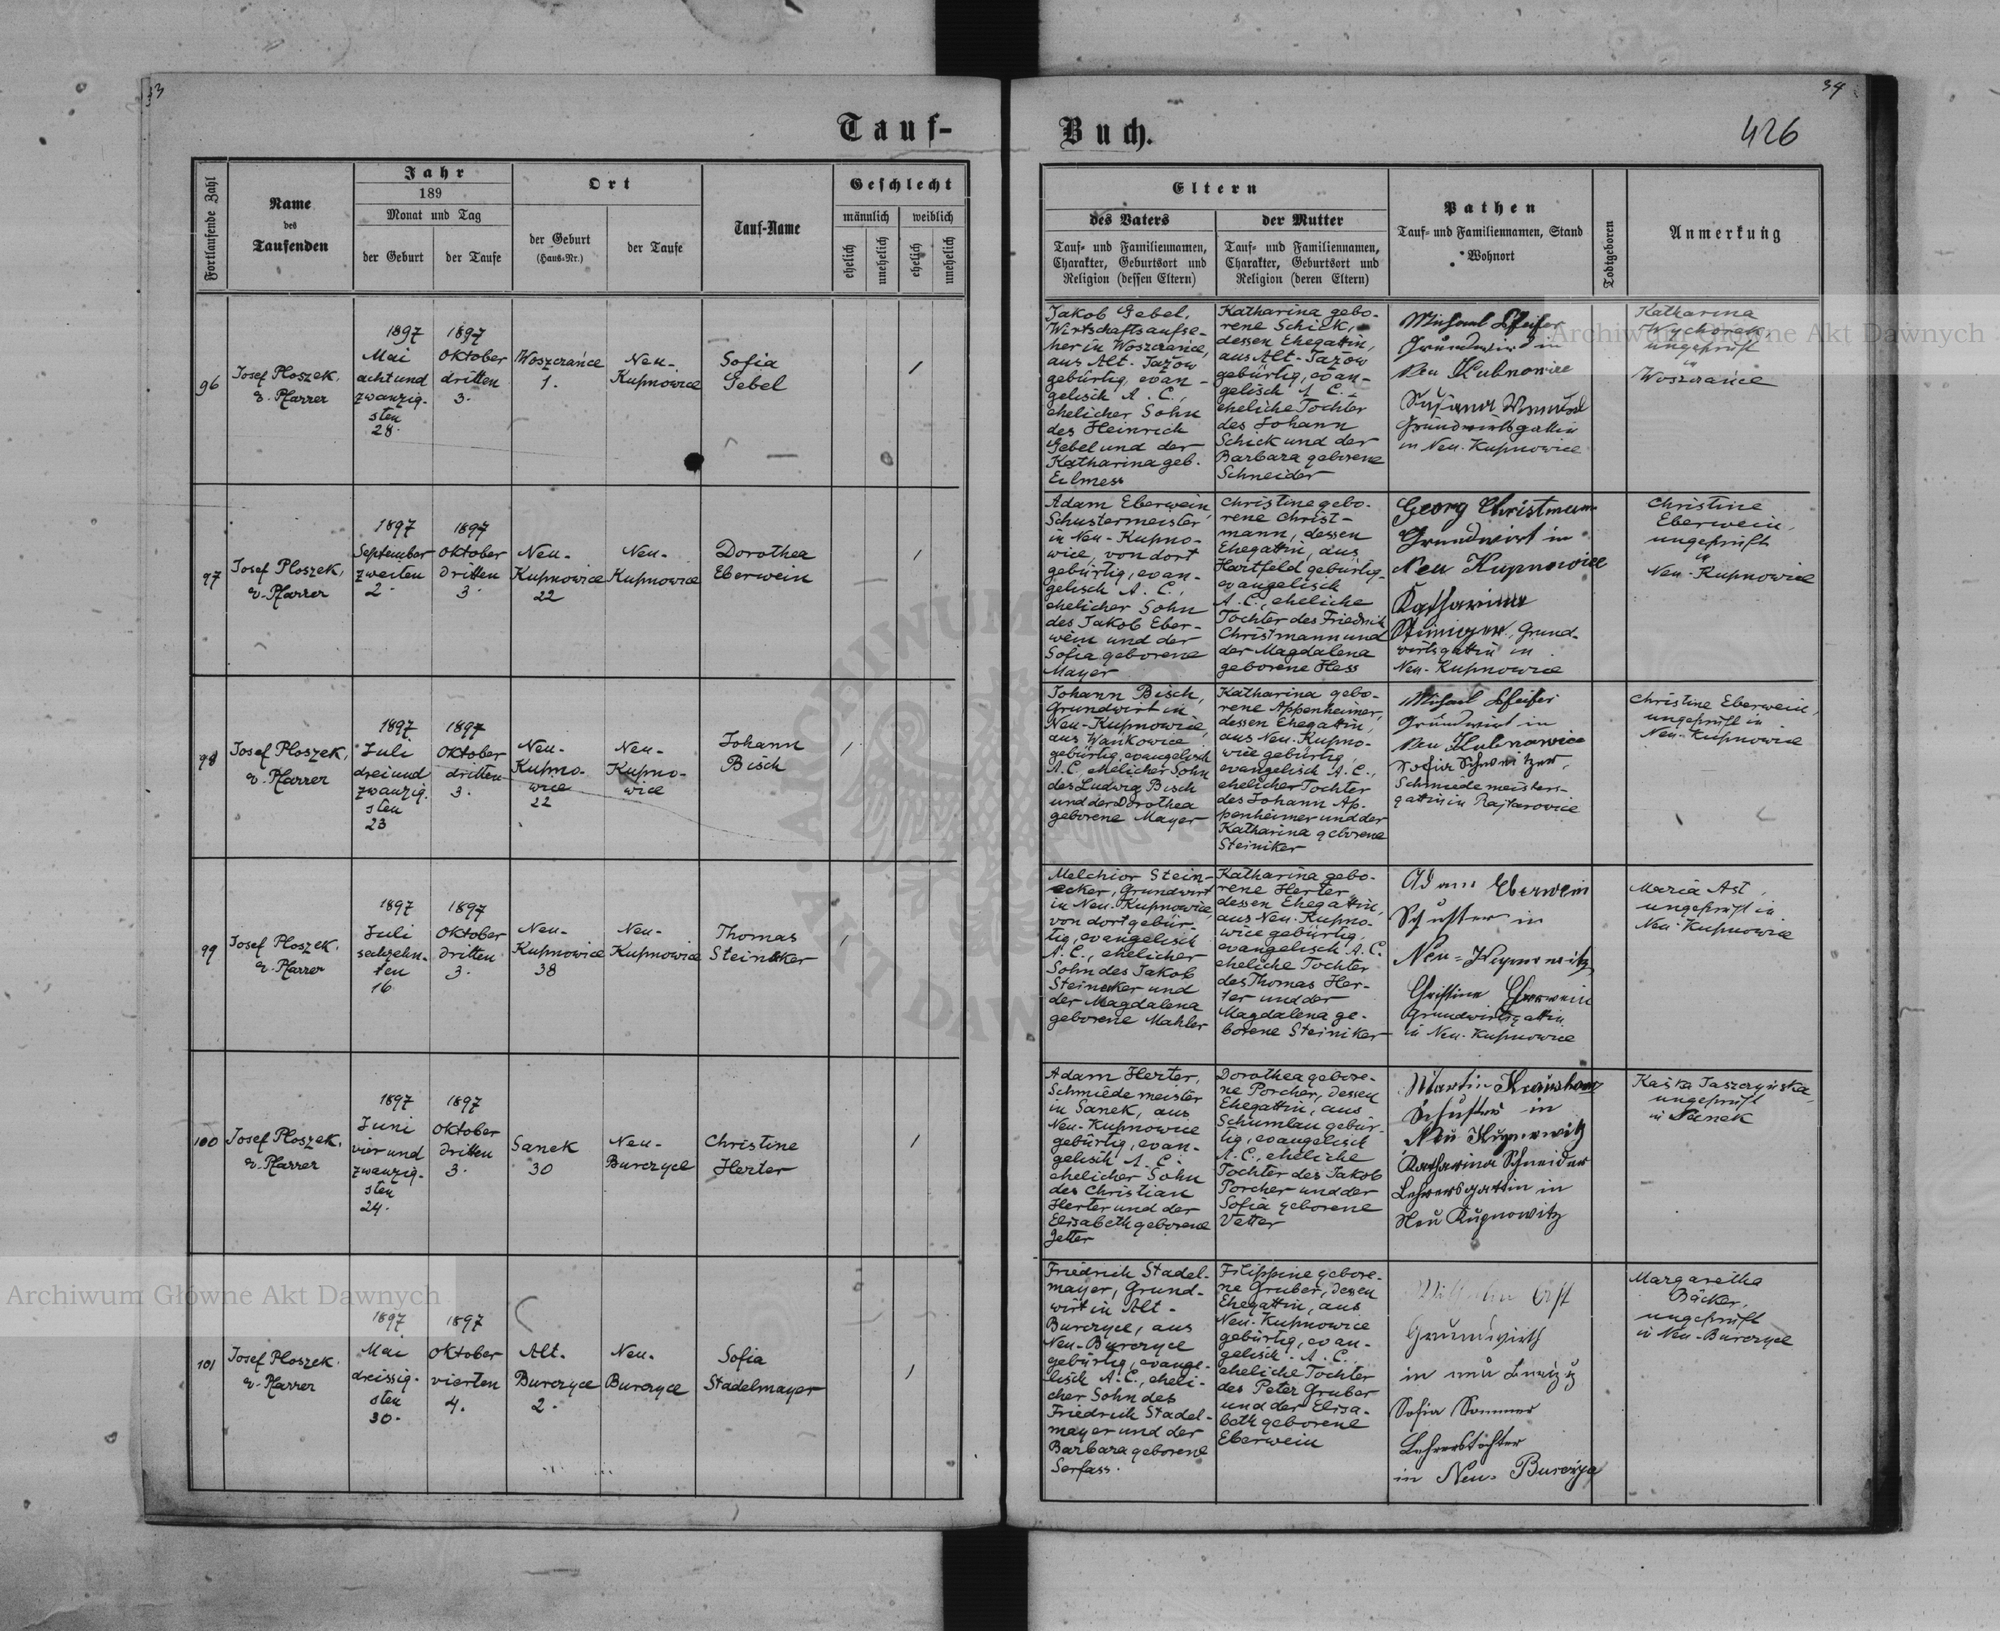 33
34
Tauf-
Buch.
426
Fortlaufende Zahl
Name
des
Taufenden
Jahr
189
Monat und Tag
der Geburt
der Taufe
Ort
der Geburt
(Haus-Nr.)
der Taufe
Tauf-Name
Geschlecht
männlich
weiblich
ehelich
unehelich
ehelich
unehelich
Eltern
des Vaters
der Mutter
Tauf- und Familiennamen,
Charakter, Geburtsort und
Religion (dessen Eltern)
Tauf- und Familiennamen,
Charakter, Geburtsort und
Religion (deren Eltern)
Pathen
Tauf- und Familiennamen, Stand
Wohnort
Todtgeboren
Anmerkung
96
Josef Ploszek,
ev. Pfarrer
1897
Mai
achtund
zwanzig-
sten
28.
1897
Oktober
dritten
3.
Woszczańce
1.
Neu-
Kupnowice
Sofia
Gebel
Jakob Gebel,
Wirtschaftsaufse-
her in Woszczańce,
aus Alt-Jazow
gebürtig, evan-
gelisch A. C.,
ehelicher Sohn
des Heinrich
Gebel und der
Katharina geb.
Eilmess
Katharina gebo-
rene Schick,
dessen Ehegattin,
aus Alt-Jazow
gebürtig, evan-
gelisch A. C.,
eheliche Tochter
des Johann
Schick und der
Barbara geborene
Schneider
Michael Pfeifer
Grundwirt in
Neu Kubnowice
Susana
Grundwirtsgattin
in Neu-Kupnowice
Katharina
Wychorek
ungeprüft
in
Woszczańce
97
Josef Ploszek,
ev. Pfarrer
1897
September
zweiten
2.
1897
Oktober
dritten
3.
Neu-
Kupnowice
22
Neu-
Kupnowice
Dorothea
Eberwein
Adam Eberwein,
Schustermeister
in Neu-Kupno-
wice, von dort
gebürtig, evan-
gelisch A. C.,
ehelicher Sohn
des Jakob Eber-
wein und der
Sofia geborene
Mayer
Christine gebo-
rene Christ-
mann, dessen
Ehegattin, aus
Hartfeld gebürtig,
evangelisch
A. C., eheliche
Tochter des Friedrich
Christmann und
der Magdalena
geborene Hess
Georg Christmann
Grundwirt in
Neu Kupnowice
Katharina
Steiniger, Grund-
wirtsgattin in
Neu-Kupnowice
Christine
Eberwein,
ungeprüft
in
Neu-Kupnowice
98
Josef Ploszek,
ev. Pfarrer
1897
Juli
dreiund
zwanzig-
sten
23
1897
Oktober
dritten
3.
Neu-
Kupno-
wice
22
Neu-
Kupno-
wice
Johann
Bisch
Johann Bisch,
Grundwirt in
Neu-Kupnowice,
aus Wankowice
gebürtig, evangelisch
A. C., ehelicher Sohn
des Ludwig Bisch
und der Dorothea
geborene Mayer
Katharina gebo-
rene Appenheimer,
dessen Ehegattin,
aus Neu-Kupno-
wice gebürtig,
evangelisch A. C.,
ehelicher Tochter
des Johann Ap-
penheimer und der
Katharina geborene
Steiniker
Michael Pfeifer
Grundwirt in
Neu Kubnowice
Sofia Schweitzer,
Schmiedemeisters-
gattin in Rajtarowice
Christine Eberwein,
ungeprüft in
Neu-Kupnowice
99
Josef Ploszek,
ev. Pfarrer
1897
Juli
sechzehn-
ten
16
1897
Oktober
dritten
3.
Neu-
Kupnowice
38
Neu-
Kupnowice
Thomas
Steinecker
Melchior Stein-
ecker, Grundwirt
in Neu-Kupnowice,
von dort gebür-
tig, evangelisch
A. C., ehelicher
Sohn des Jakob
Steinecker und
der Magdalena
geborene Mahler
Katharina gebo-
rene Herter,
dessen Ehegattin,
aus Neu-Kupno-
wice gebürtig,
evangelisch A. C.
eheliche Tochter
des Thomas Her-
ter und der
Magdalena ge-
borene Steiniker
Adam Eberwein
Schuster in
Neu-
Christine Eberwein
Grundwirtsgattin
in Neu-Kupnowice
Maria Ast,
ungeprüft in
Neu-Kupnowice
100
Josef Ploszek,
ev. Pfarrer
1897
Juni
vierund
zwanzig-
sten
24.
1897
Oktober
dritten
3.
Sanek
30
Neu-
Burczyce
Christine
Herter
Adam Herter,
Schmiedemeister
in Sanek, aus
Neu-Kupnowice
gebürtig, evan-
gelisch A. C.
ehelicher Sohn
des Christian
Herter und der
Elisabeth geborene
Jetter
Dorothea gebore-
ne Porcher, dessen
Ehegattin, aus
Schumlau gebür-
tig, evangelisch
A. C., eheliche
Tochter des Jakob
Porcher und der
Sofia geborene
Vetter
Martin
Schuster in
Neu Kupnowitz
Katharina Schneider
Lehrersgattin in
Neu Kupnowitz
Kaśka Jaszczyńska,
ungeprüft
in Sanek
101
Josef Ploszek,
ev. Pfarrer
1897
Mai
dreissig-
sten
30.
1897
Oktober
vierten
4.
Alt-
Burczyce
2.
Neu-
Burczyce
Sofia
Stadelmayer
Friedrich Stadel-
mayer, Grund-
wirt in Alt-
Burczyce, aus
Neu-Burczyce
gebürtig, evange-
lisch A. C., eheli-
cher Sohn des
Friedrich Stadel-
mayer und der
Barbara geborene
Serfass.
Filippine gebore-
ne Gruber, dessen
Ehegattin, aus
Neu-Kupnowice
gebürtig, evan-
gelisch A. C.,
eheliche Tochter
des Peter Gruber
und der Elisa-
beth geborene
Eberwein
Wilhelm Ast
Grundwirth
in neu
Sofia Sommer
Lehrerstochter
in Neu-Burczyce
Margaretha
Bäcker,
ungeprüft
in Neu-Burczyce
Archiwum Główne Akt Dawnych
Archiwum Główne Akt Dawnych
ARCHIWUM
AKT DAWNYCH